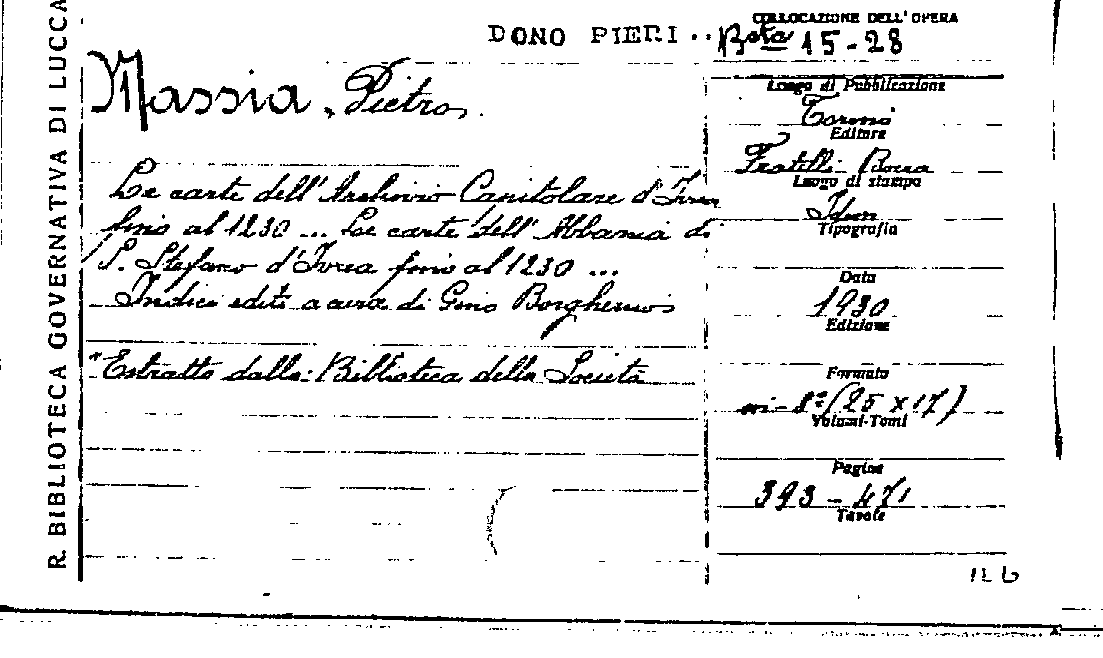 R. BIBLIOTECA GOVERNATIVA DI LUCCA
DONO PIERI..
COLLOCAZIONE DELL'OPERA
Busta 15-28
Massia, Pietro.
Le carte dell'Archivio Capitolare d'Ivrea
fino al 1230 ... Le carte dell'Abbazia di
S. Stefano d'Ivrea fino al 1230 ...
Indici editi a cura di Gino Borghezio
*Estratto dalla: Biblioteca della Società
Luogo di Pubblicazione
Torino
Editore
Fratelli Bocca
Luogo di stampa
Idem
Tipografia
Data
1930
Edizione
Formato
in-8° (25 x 17)
Volumi-Tomi
Pagine
393 - 471
Tavole